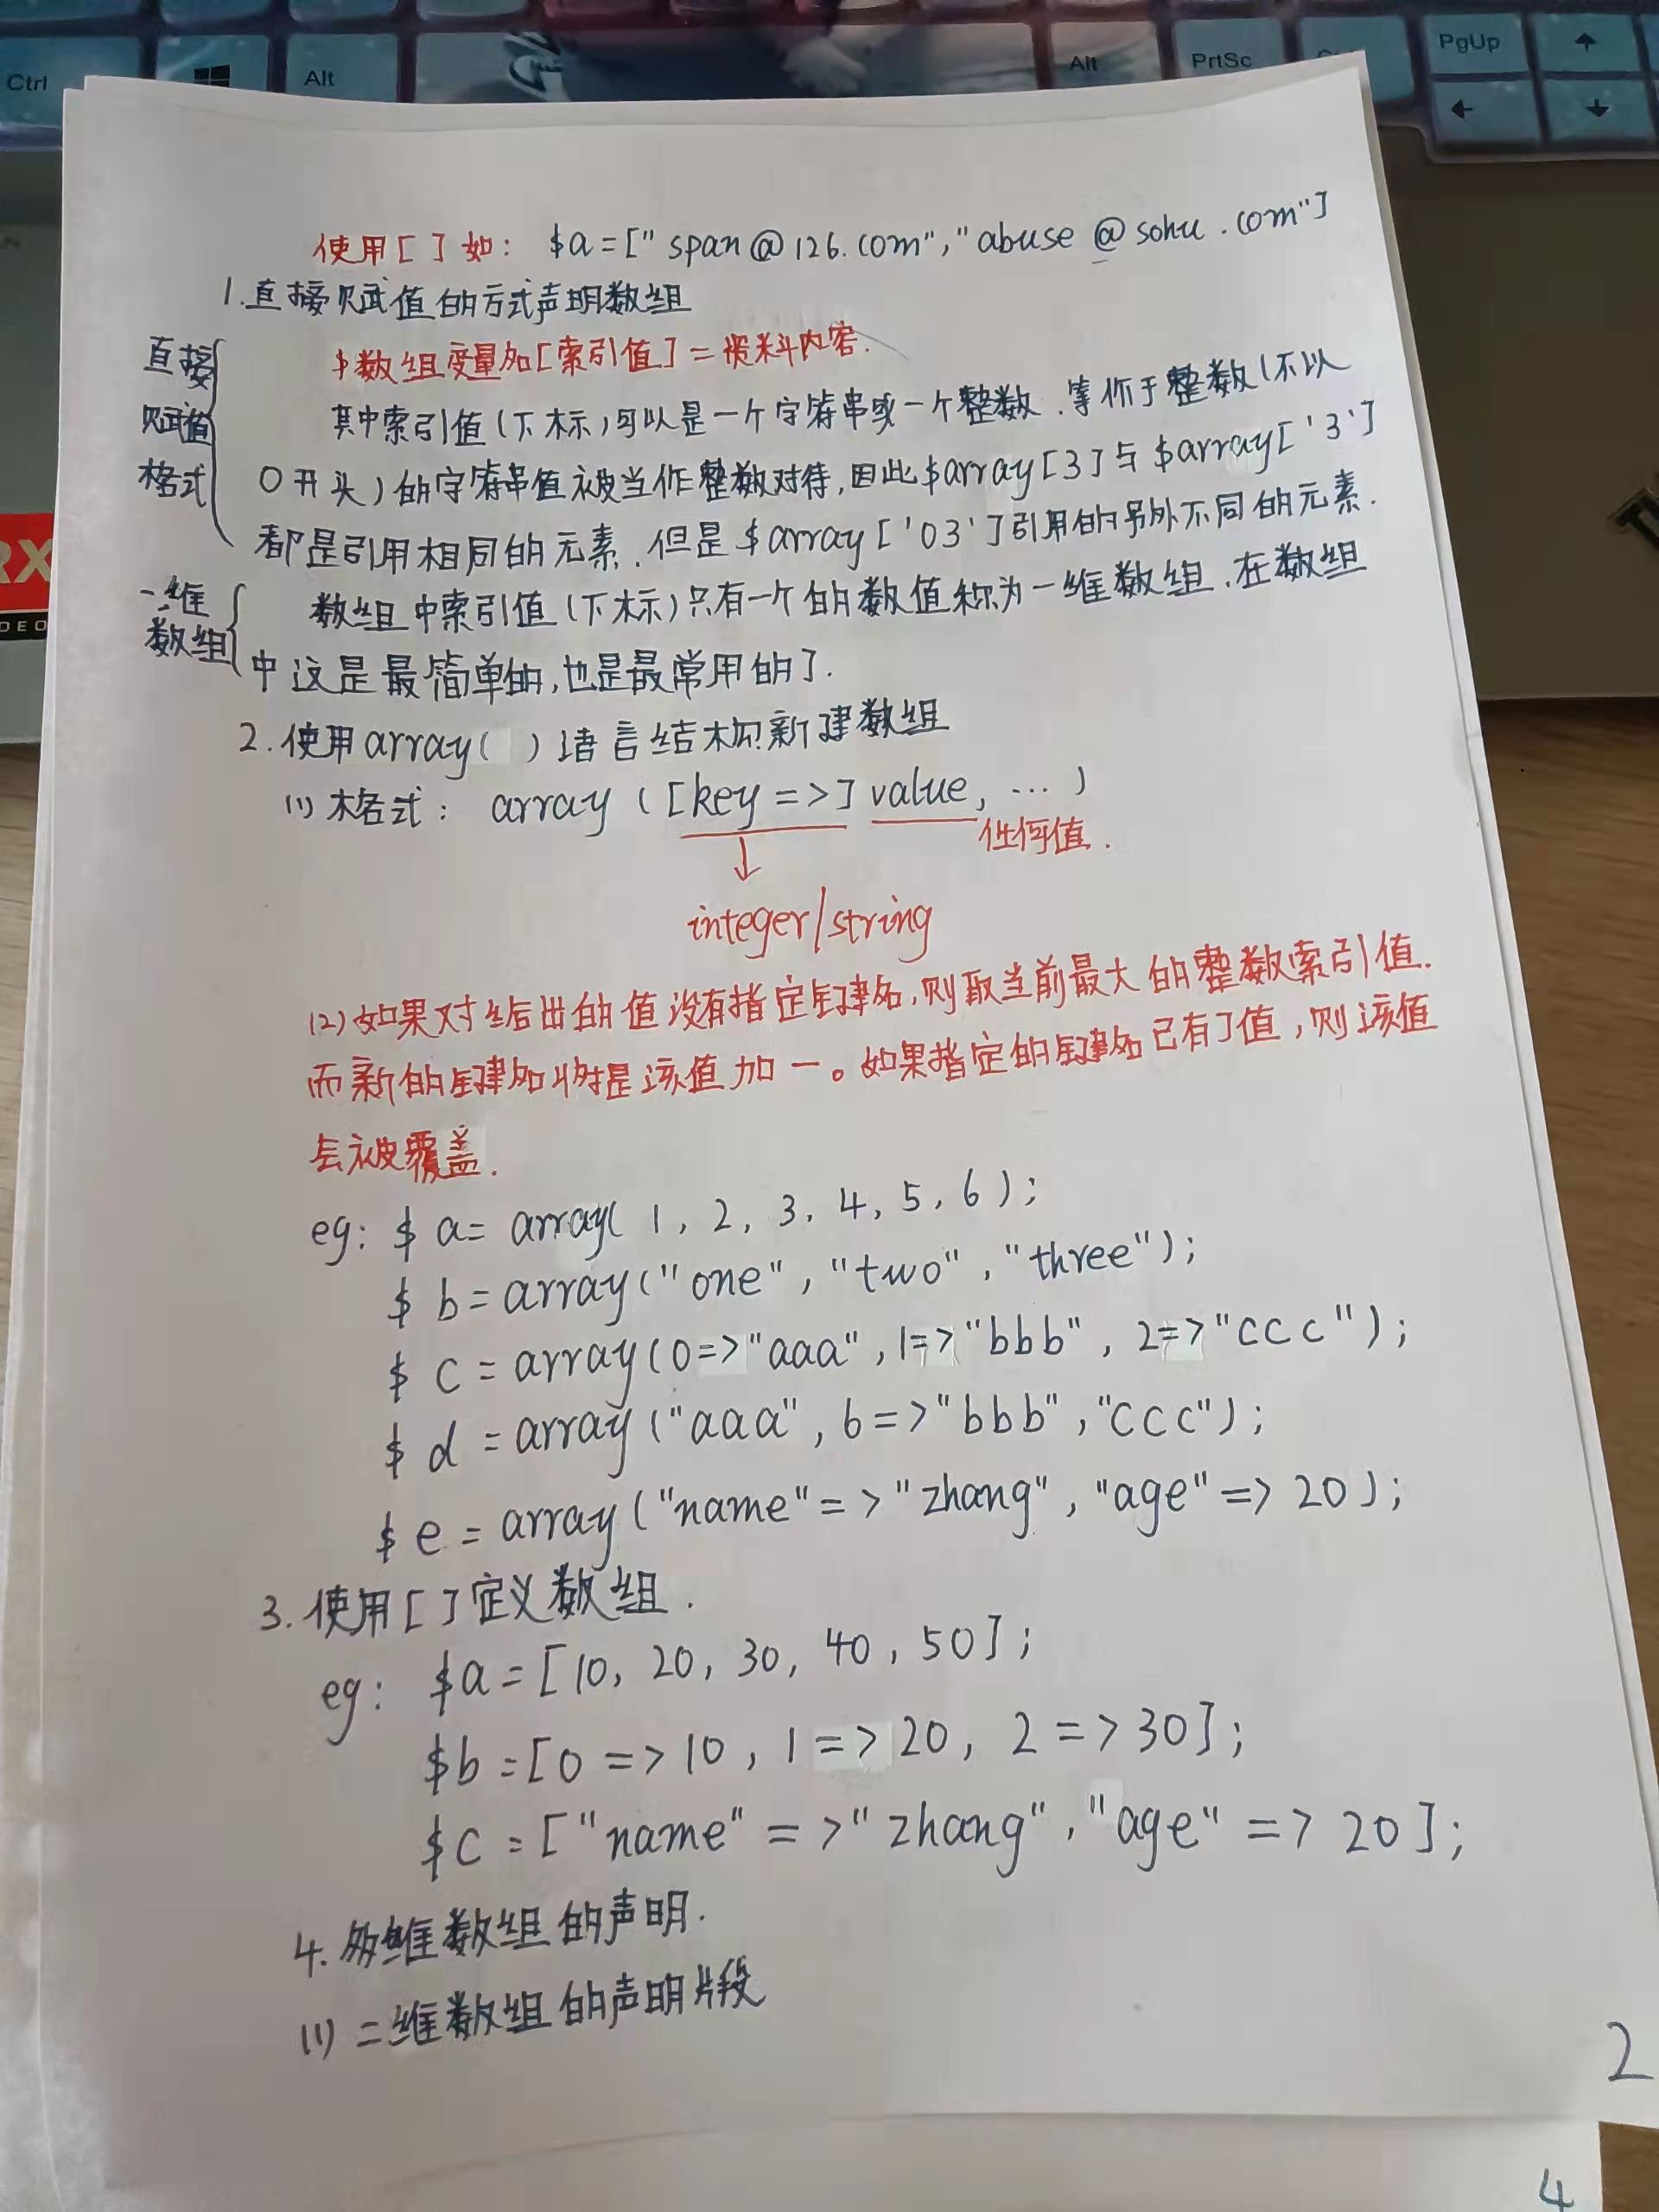 Ctrl
Alt
Alt
PrtSc
PgUp
使用[ ]如: $a=["span@126.com","abuse@sohu.com"]
1.直接赋值的方式声明数组
直接
赋值
格式
$数组变量名[索引值]=资料内容.
其中索引值(下标)可以是一个字符串或一个整数.等价于整数(不以
0开头)的字符串值被当作整数对待,因此$array[3]与$array['3']
都是引用相同的元素.但是$array['03']引用的另外不同的元素.
一维
数组
数组中索引值(下标)只有一个的数值称为一维数组.在数组
中这是最简单的,也是最常用的了.
2.使用array( )语言结构新建数组
(1)格式: array ([key =>] value, ...)
任何值.
integer/string
(2)如果对给出的值没有指定键名,则取当前最大的整数索引值.
而新的键名将是该值加一。如果指定的键名已有了值,则该值
会被覆盖.
eg: $ a= array( 1, 2, 3, 4, 5, 6 );
$ b=array("one", "two", "three");
$ c = array(0=>"aaa", 1=>"bbb", 2=>"ccc");
$ d = array("aaa", 6=>"bbb", "ccc");
$ e = array("name"=>"zhang", "age"=>20);
3.使用[ ]定义数组.
eg: $a=[10, 20, 30, 40, 50];
$b=[0=>10, 1=>20, 2=>30];
$c=["name"=>"zhang", "age"=>20];
4.多维数组的声明.
(1)二维数组的声明片段
2
4